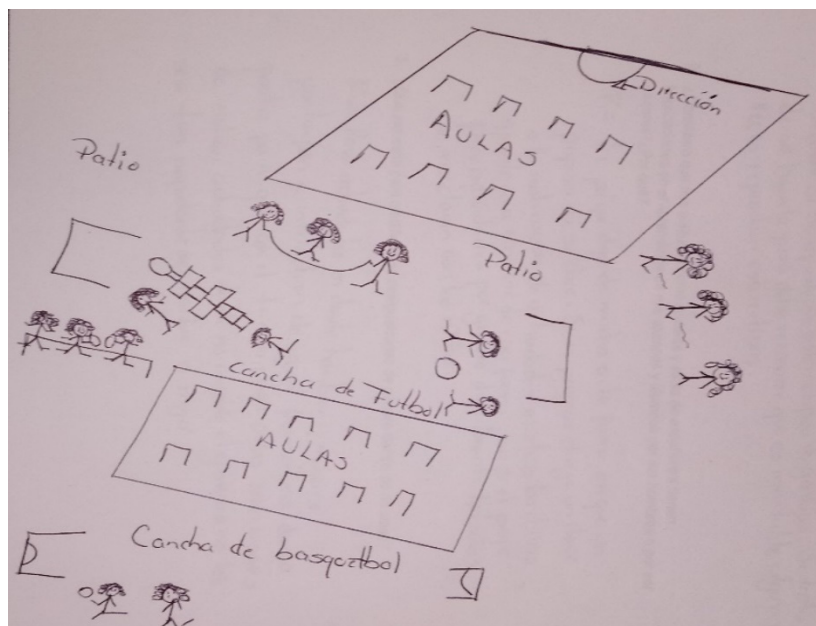 Dirección
AULAS
Patio
Patio
Cancha de Futbol
AULAS
Cancha de basqoztbol